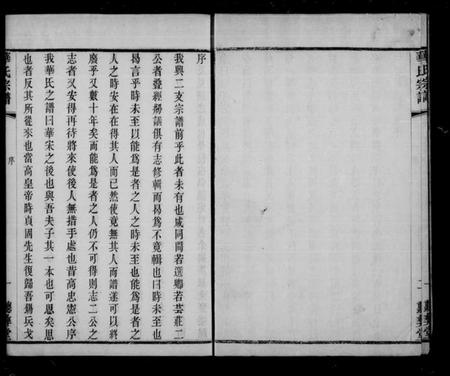 華氏宗譜
序
我興二支宗譜前乎此者未有也咸同間若選卿若芸莊二
公者登經勞議俱有志修輯而曷爲不竟輯也曰時未至也
曷言乎時未至以能爲是者之人之時未至也能爲是者之
人之時安在在得其人而已然使竟無其人而譜遂可以終
廢乎又數十年矣而能爲是者之人仍不可得則志二公之
志者又安得再待將來使後人無措手處也昔高忠憲公序
我華氏之譜曰華宋之後也與吾夫子其一本也可思矣思
也者反其所從來也當高皇帝時貞國先生復歸吾錫兵戈
華氏宗譜
序
一